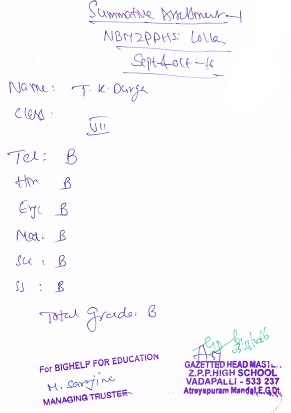 Summative Assessment - I
NBMZPPHS: Lolla
Sept & Oct - 16
Name: T. K. Durga
Class:
VII
Tel: B
Hin B
Eng: B
Mat: B
Sci : B
SS : B
Total Grade: B
For BIGHELP FOR EDUCATION
M. Sarojini
MANAGING TRUSTEE
GAZETTED HEAD MAST
Z.P.P.HIGH SCHOOL
VADAPALLI - 533 237
Atreyapuram Mandal,E.G.Dt.